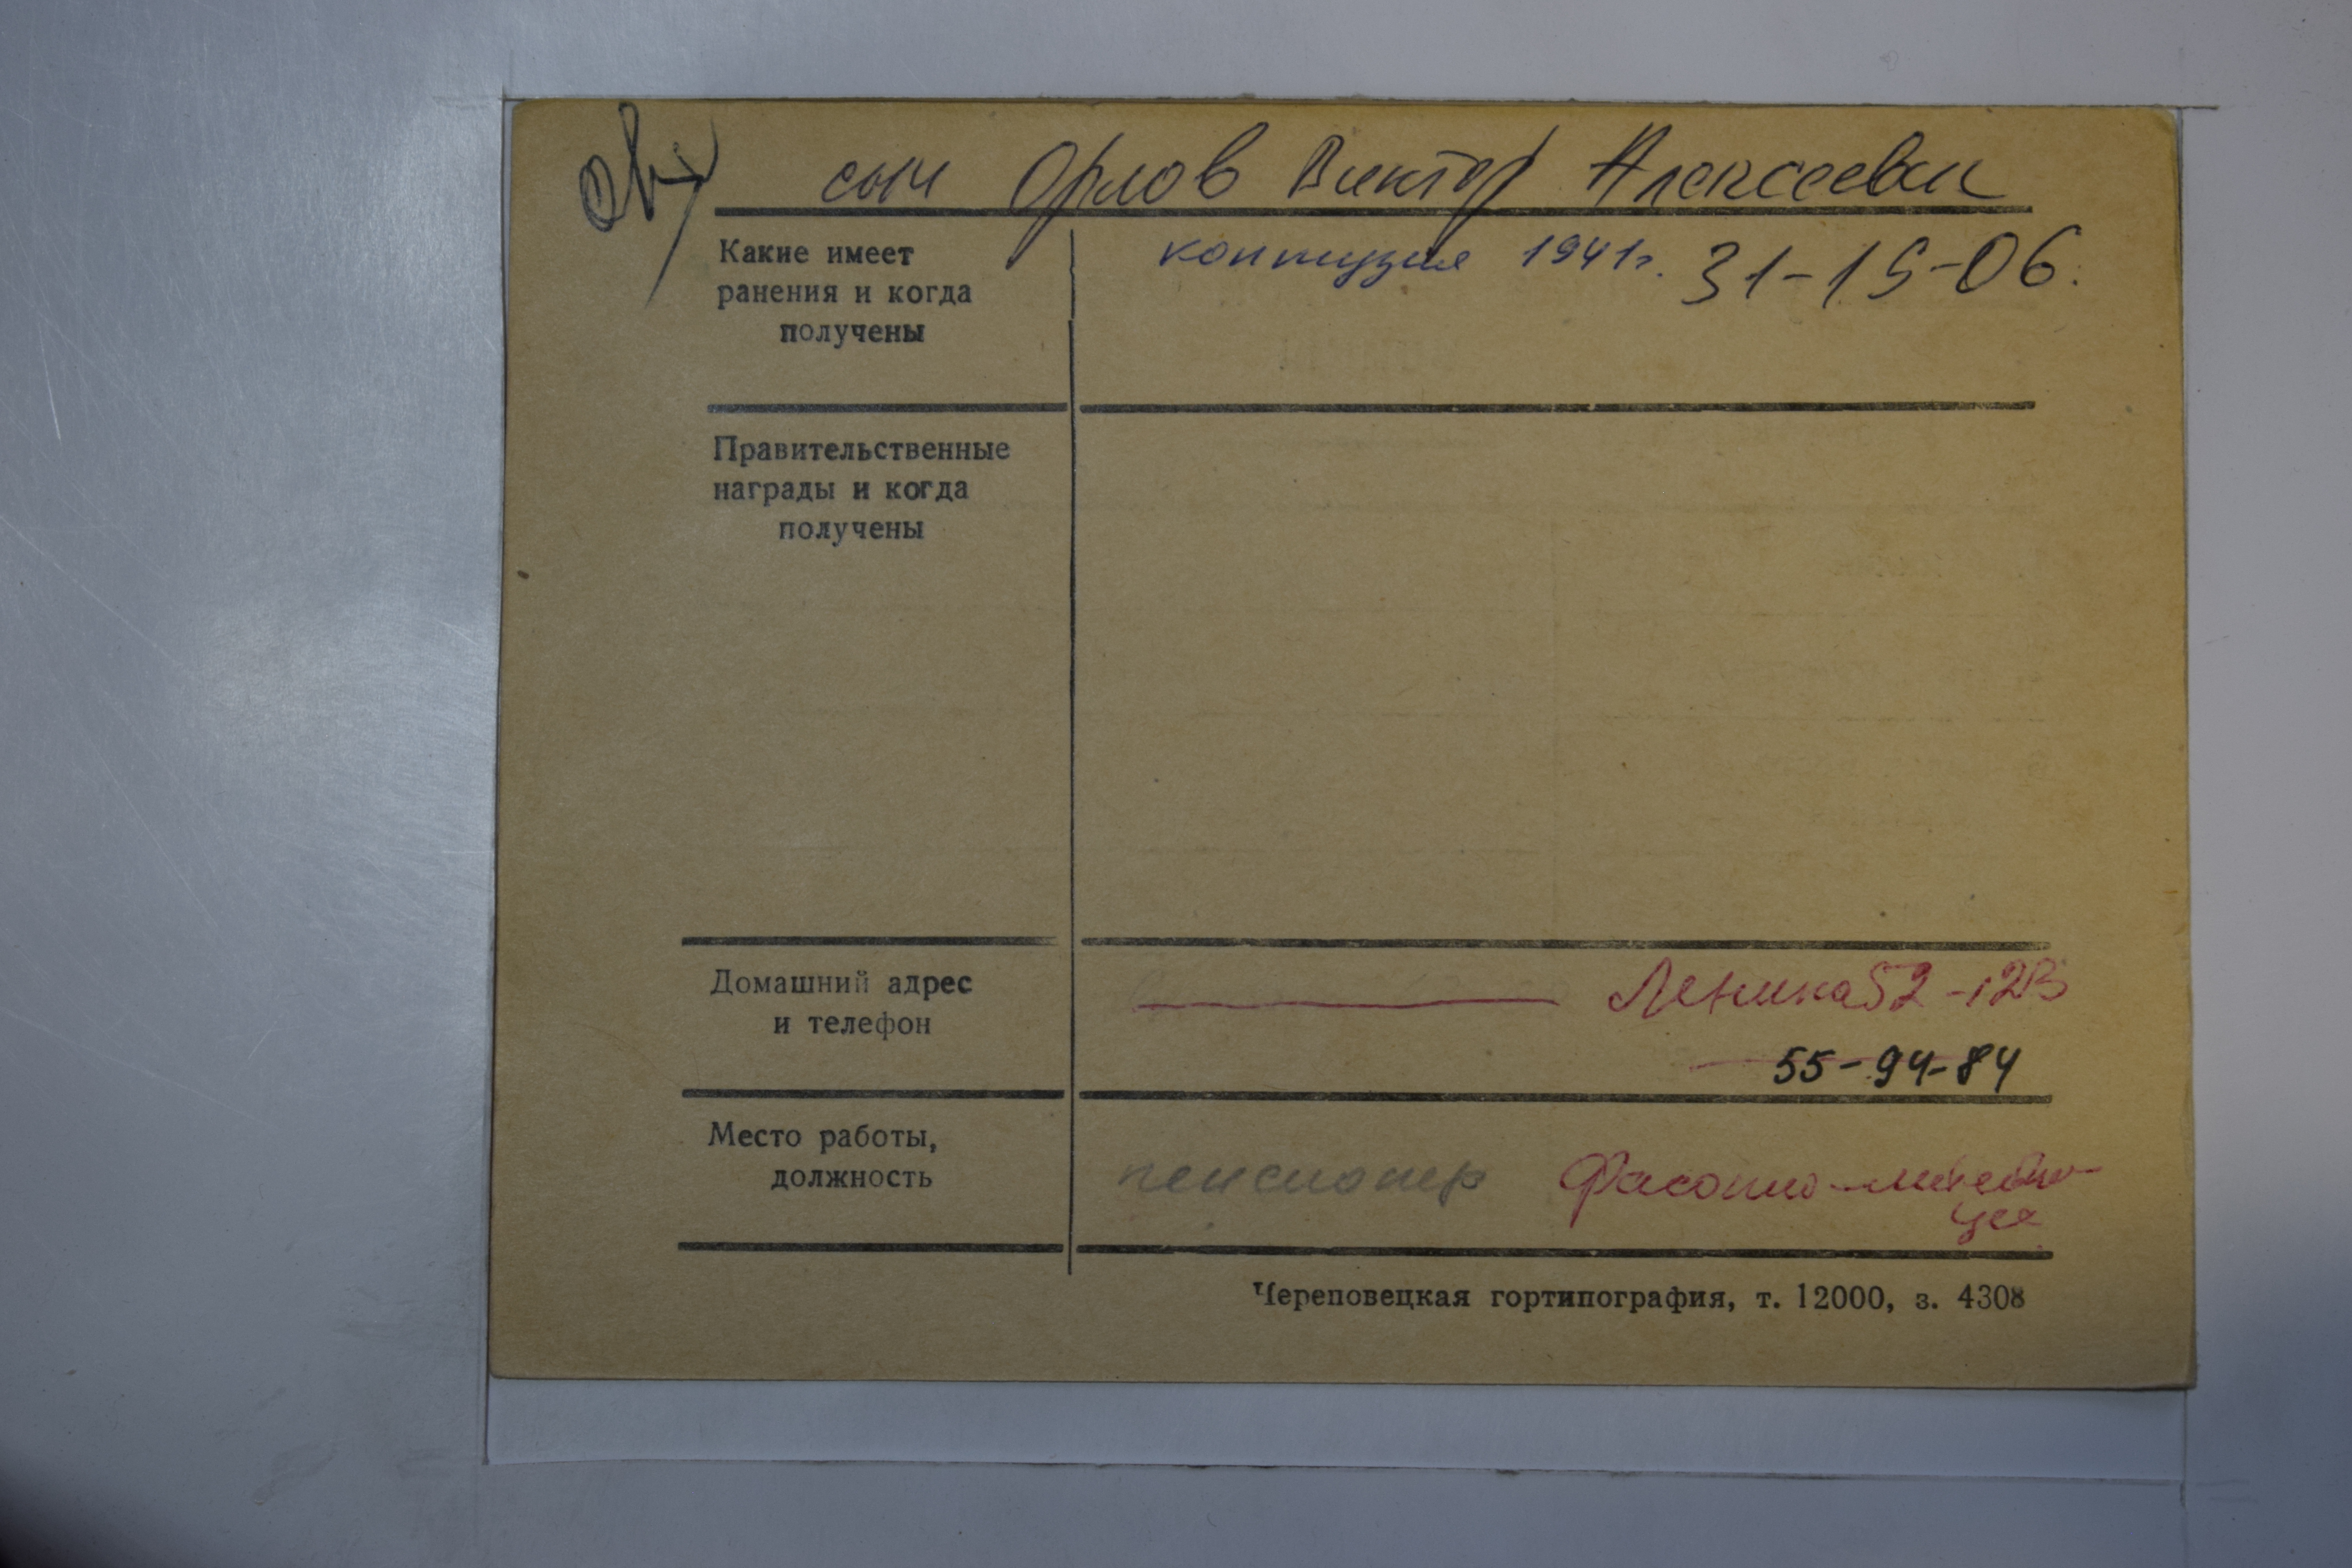 сын Орлов Виктор Алексеевич
Какие имеет
ранения и когда
получены
контузия 1941г. 31-15-06.
Правительственные
награды и когда
получены
Домашний адрес
и телефон
Ленина 52-123
55-94-84
Место работы,
должность
пенсионер Фасонно-литейно-
цех
Череповецкая гортипография, т. 12000, з. 4308